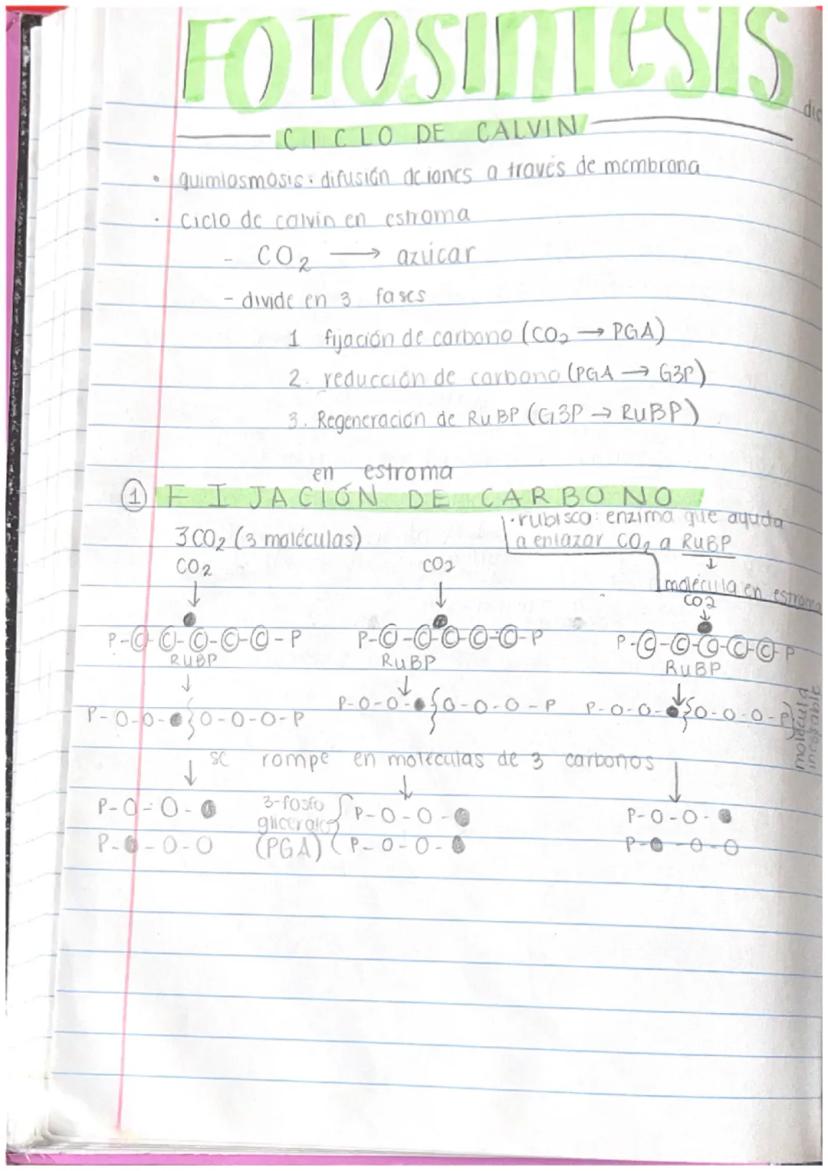 FOTOSINTESIS
CICLO DE CALVIN
• quimiosmosis: difusión de iones a través de membrana
• Ciclo de calvin en estroma
- CO₂ → azúcar
- divide en 3 fases
1 fijación de carbono (CO₂ → PGA)
2. reducción de carbono (PGA → G3P)
3. Regeneración de RuBP (G3P → RuBP)
en estroma
① FIJACIÓN DE CARBONO
• rubisco: enzima que ayuda
a enlazar CO₂ a RuBP
↓
molécula en estroma
3CO₂ (3 moléculas)
CO₂ CO₂ CO₂
P-Ⓒ-Ⓒ-Ⓒ-Ⓒ-Ⓒ-P P-Ⓒ-Ⓒ-O-O-O-P P-Ⓒ-Ⓒ-Ⓒ-Ⓒ-Ⓒ-P
RuBP RuBP RuBP
P-O-O-●}O-O-O-P P-O-O-●}O-O-O-P P-O-O-●}O-O-O-P}
molécula
inestable
se rompe en moléculas de 3 carbonos
P-O-O-● 3-fosfo P-O-O-● P-O-O-●
P-●-O-O (PGA) P-O-O-● P-●-O-O